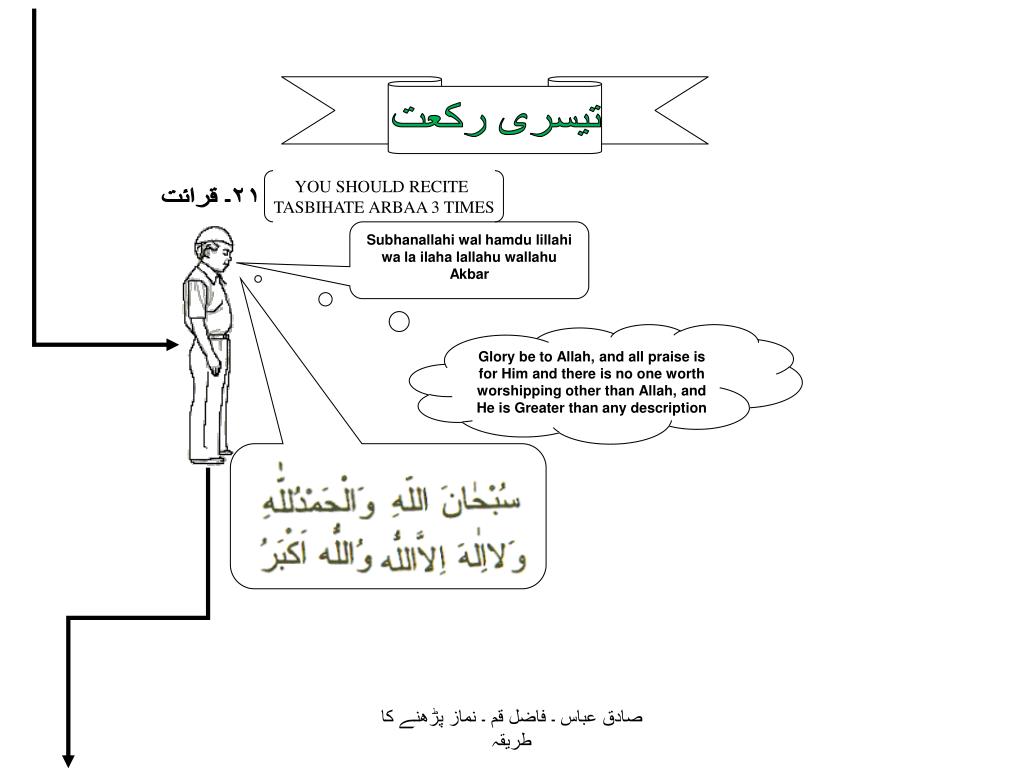 تیسری رکعت
۲۱۔ قرائت
YOU SHOULD RECITE
TASBIHATE ARBAA 3 TIMES
Subhanallahi wal hamdu lillahi
wa la ilaha lallahu wallahu
Akbar
Glory be to Allah, and all praise is
for Him and there is no one worth
worshipping other than Allah, and
He is Greater than any description
سُبْحٰانَ اللّٰهِ وَالْحَمْدُلِلّٰهِ
وَلاٰاِلٰهَ اِلاَّاللّٰهُ وُاللّٰهُ اَكْبَرُ
صادق عباس ۔ فاضل قم ۔ نماز پڑھنے کا
طریقہ